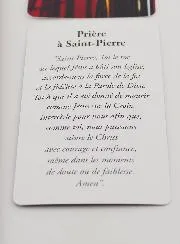 Prière
à Saint-Pierre
"Saint Pierre, toi le roc
sur lequel Jésus a bâti son Église,
accorde-nous la force de la foi
et la fidélité à la Parole de Dieu.
Toi à qui il a été donné de mourir
comme Jésus sur la Croix,
Intercède pour nous afin que,
comme toi, nous puissions
suivre le Christ
avec courage et confiance,
même dans les moments
de doute ou de faiblesse.
Amen".